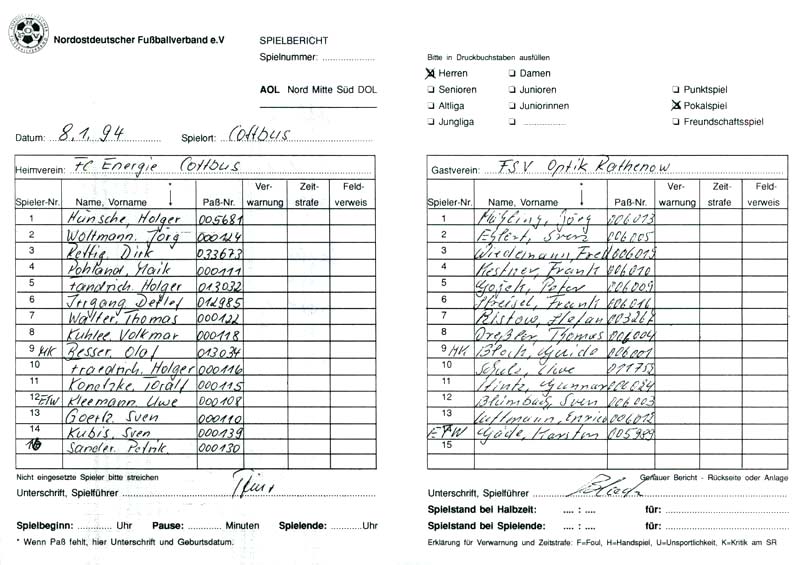 Nordostdeutscher Fußballverband e.V
SPIELBERICHT
Spielnummer: ..................
AOL Nord Mitte Süd DOL
Datum: 8.1.94 Spielort: Cottbus
Heimverein: FC Energie Cottbus
Spieler-Nr. Name, Vorname * ↓ Paß-Nr. Ver-warnung Zeit-strafe Feld-verweis
1 Hünsche, Holger 005681
2 Woltmann, Jörg 000124
3 Rettig, Dirk 033673
4 Pohland, Maik 000111
5 Fandrich, Holger 013032
6 Irrgang Detlef 012985
7 Walter, Thomas 000122
8 Kuhlee, Volkmar 000118
9 MK Besser, Olaf 013034
10 Fraedrich, Holger 000116
11 Konetzke, Toralf 000115
12 ETW Kleemann, Uwe 000108
13 Goertz, Sven 000110
14 Kubis, Sven 000139
16 Sander, Patrik 000130
Nicht eingesetzte Spieler bitte streichen
Unterschrift, Spielführer
Spielbeginn: ............ Uhr Pause: ............ Minuten Spielende: ............Uhr
* Wenn Paß fehlt, hier Unterschrift und Geburtsdatum.
Bitte in Druckbuchstaben ausfüllen
☒ Herren ❏ Damen
❏ Senioren ❏ Junioren ❏ Punktspiel
❏ Altliga ❏ Juniorinnen ☒ Pokalspiel
❏ Jungliga ❏ .................. ❏ Freundschaftsspiel
Gastverein: FSV Optik Rathenow
Spieler-Nr. Name, Vorname * ↓ Paß-Nr. Ver-warnung Zeit-strafe Feld-verweis
1 Jörg 006013
2 Sven 006005
3 Wiedemann, Fred 006019
4 Kestner, Frank 006010
5 Peter 006009
6 Frank 006016
7 Ristow, Stefan
8 Dreßler, Thomas 006004
9 MK Bloch, Guido 006001
10 Schulz, Uwe 011752
11 Hintz, Gunnar
12 Blumbach, Sven 006003
13 Enrico 006012
ETW Gäde, Karsten 005989
15
Genauer Bericht - Rückseite oder Anlage
Unterschrift, Spielführer Bloch
Spielstand bei Halbzeit: .... : .... für: ..............................
Spielstand bei Spielende: .... : .... für: ..............................
Erklärung für Verwarnung und Zeitstrafe: F=Foul, H=Handspiel, U=Unsportlichkeit, K=Kritik am SR